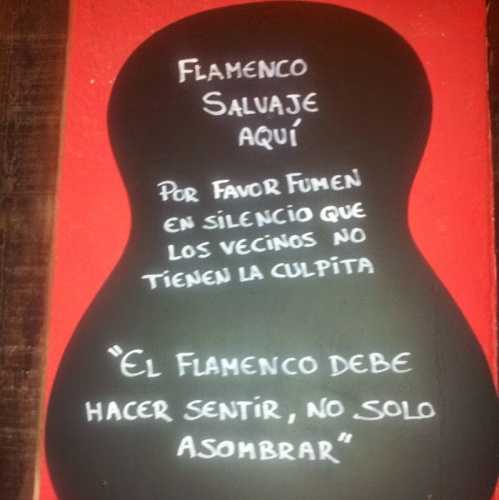 FLAMENCO
SALVAJE
AQUÍ
POR FAVOR FUMEN
EN SILENCIO QUE
LOS VECINOS NO
TIENEN LA CULPITA
"EL FLAMENCO DEBE
HACER SENTIR, NO SOLO
ASOMBRAR"